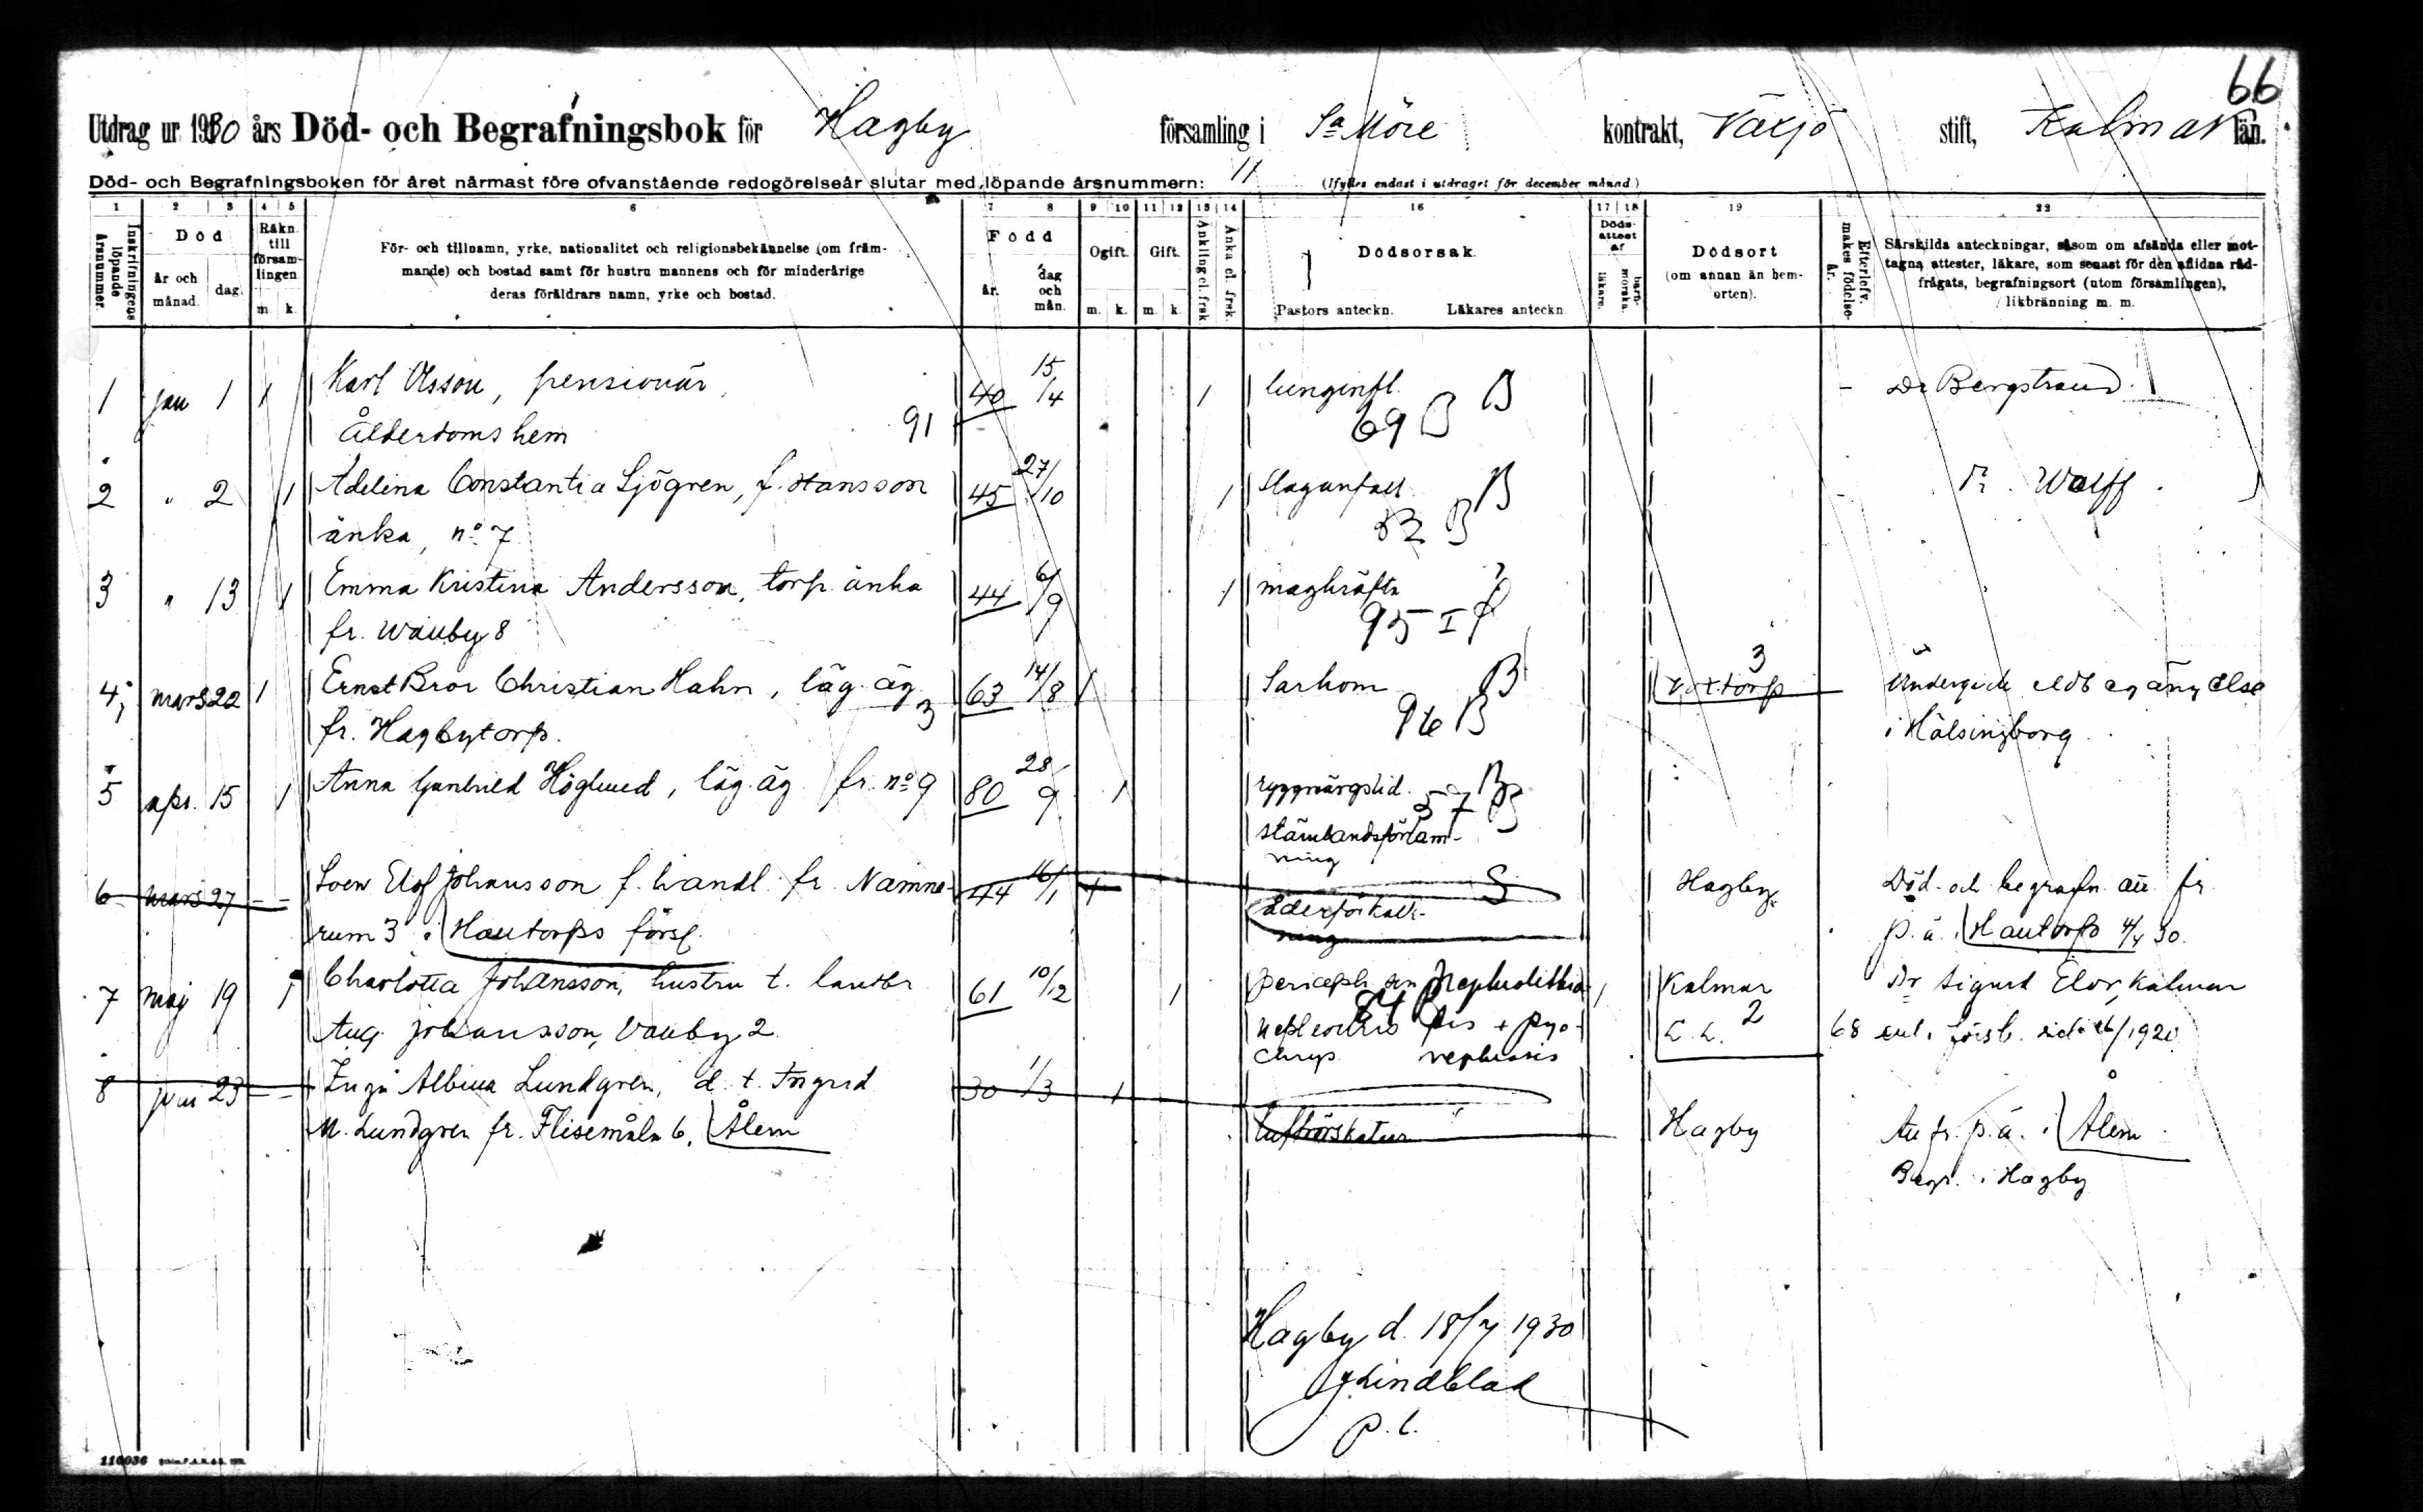 66
Utdrag ur 1930 års Död- och Begrafningsbok för Hagby församling i Sa Möre kontrakt, Växjö stift, Kalmar län.
Död- och Begrafningsboken för året närmast före ofvanstående redogörelseår slutar med löpande årsnummern: 11 (Ifylles endast i utdraget för december månad.)
1 2 3 4 5 6 7 8 9 10 11 12 13 14 16 17 18 19 22
Inskrifningens löpande årsnummer.
Död
år och månad.
dag.
Räkn. till församlingen
m. k.
För- och tillnamn, yrke, nationalitet och religionsbekännelse (om främ-
mande) och bostad samt för hustru mannens och för minderårige
deras föräldrars namn, yrke och bostad.
Född
år.
dag och mån.
Ogift.
m. k.
Gift.
m. k.
Änkling el. frsk.
Änka el. frsk.
Dödsorsak.
Pastors anteckn. Läkares anteckn.
Döds-attest af
läkare.
barnmorska.
Dödsort
(om annan än hem-
orten).
Efterlefv. makes födelse-år.
Särskilda anteckningar, såsom om afsända eller mot-
tagna attester, läkare, som senast för den aflidna råd-
frågats, begrafningsort (utom församlingen),
likbränning m. m.
1 jan 1 1 Karl Olsson, pensionär, 40 15/4 1 lunginfl. B - Dr Bergstrand
Ålderdomshem 91 69 B
2 " 2 1 Adelina Constantia Sjögren, f. Hansson 45 27/10 1 slaganfall B Wolff
änka, no 7 82 B
3 " 13 1 Emma Kristina Andersson, torp. änka 44 6/9 1 magkräfta
fr. Wauby 8 95 I
4 mars 22 1 Ernst Bror Christian Hahn, läg. äg. 63 14/8 1 Sarkom B 3 Voxtorp Undergick eldbegängelse
fr. Hagbytorp. 3 96 B i Hälsingborg
5 apr. 15 1 Anna Gunhild Höglund, läg. äg. fr. no 9 80 28/9 1 ryggmärgslid. B
57 B
stämbandsförlam-
ning
6 mars 27 - - Sven Elof Johansson f. handl. fr. Namne- 44 16/1 1 åderförkalk- S Hagby Död- och begrafn. att. fr.
rum 3 i Hautorps förs. ning p. ä. i Hautorp 4/4 30.
7 maj 19 1 Charlotta Johansson, hustru t. lantbr. 61 10/12 1 Nephrolithia- 1 Kalmar Dr Sigurd Elor, Kalmar
Aug. Johansson, Vauby 2 sis + pyo- L. L. 2 68 enl. förs.b. sid. 26/1920
nephrosis
8 juni 23 - - Inga Albina Lundgren, d. t. Ingrid 30 1/3 1
M. Lundgren fr. Flisemåla 6, Ålem luftrörskatar Hagby Att fr. p.ä. i Ålem
Begr. i Hagby
Hagby d. 18/7 1930
J. Lindblad
p. l.
110036